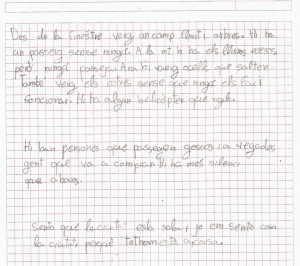 Des de la finestre veig un camp ple i arbres. Hi ha
un passeig sense ningú. A la nit hi ha els llums encesos
però ningú passeja. Ara hi vaeig ocells que salten
També veig els cotxes sense que ningú els faci
funcionar. Hi ha algun helicòpter que vigila.
Hi han persones que passegen gossos i a vegades
gent que va a comprar. Hi ha més silenci
que abans.
Sento que la ciutat esta sola i jo em sento com
la ciutat perquè tothom està a casa.